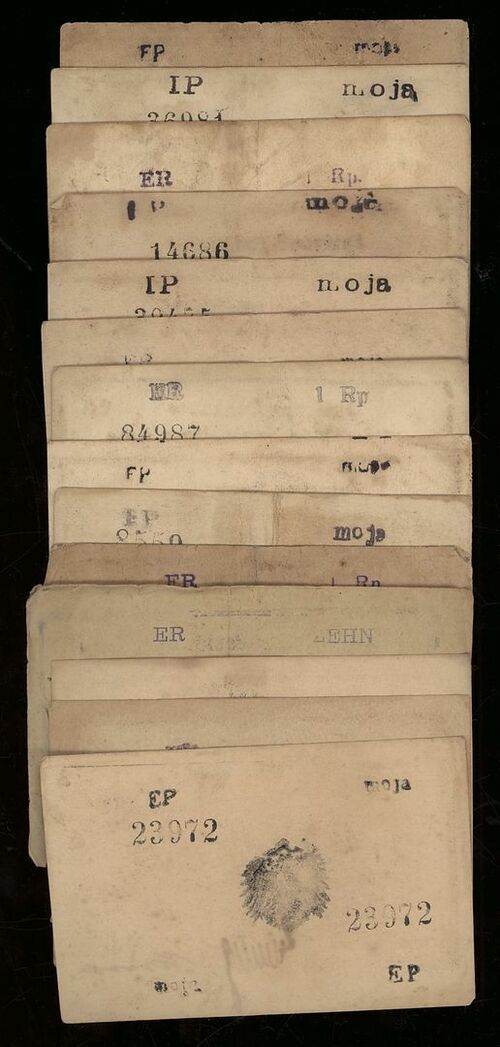 EP moja
IP moja
26991
ER 1 Rp.
IP moja
14686
IP moja
ER 1 Rp
84987
FP moja
FP moja
8550
ER 1 Rp
ER ZEHN
EP moja
23972
23972
moja EP